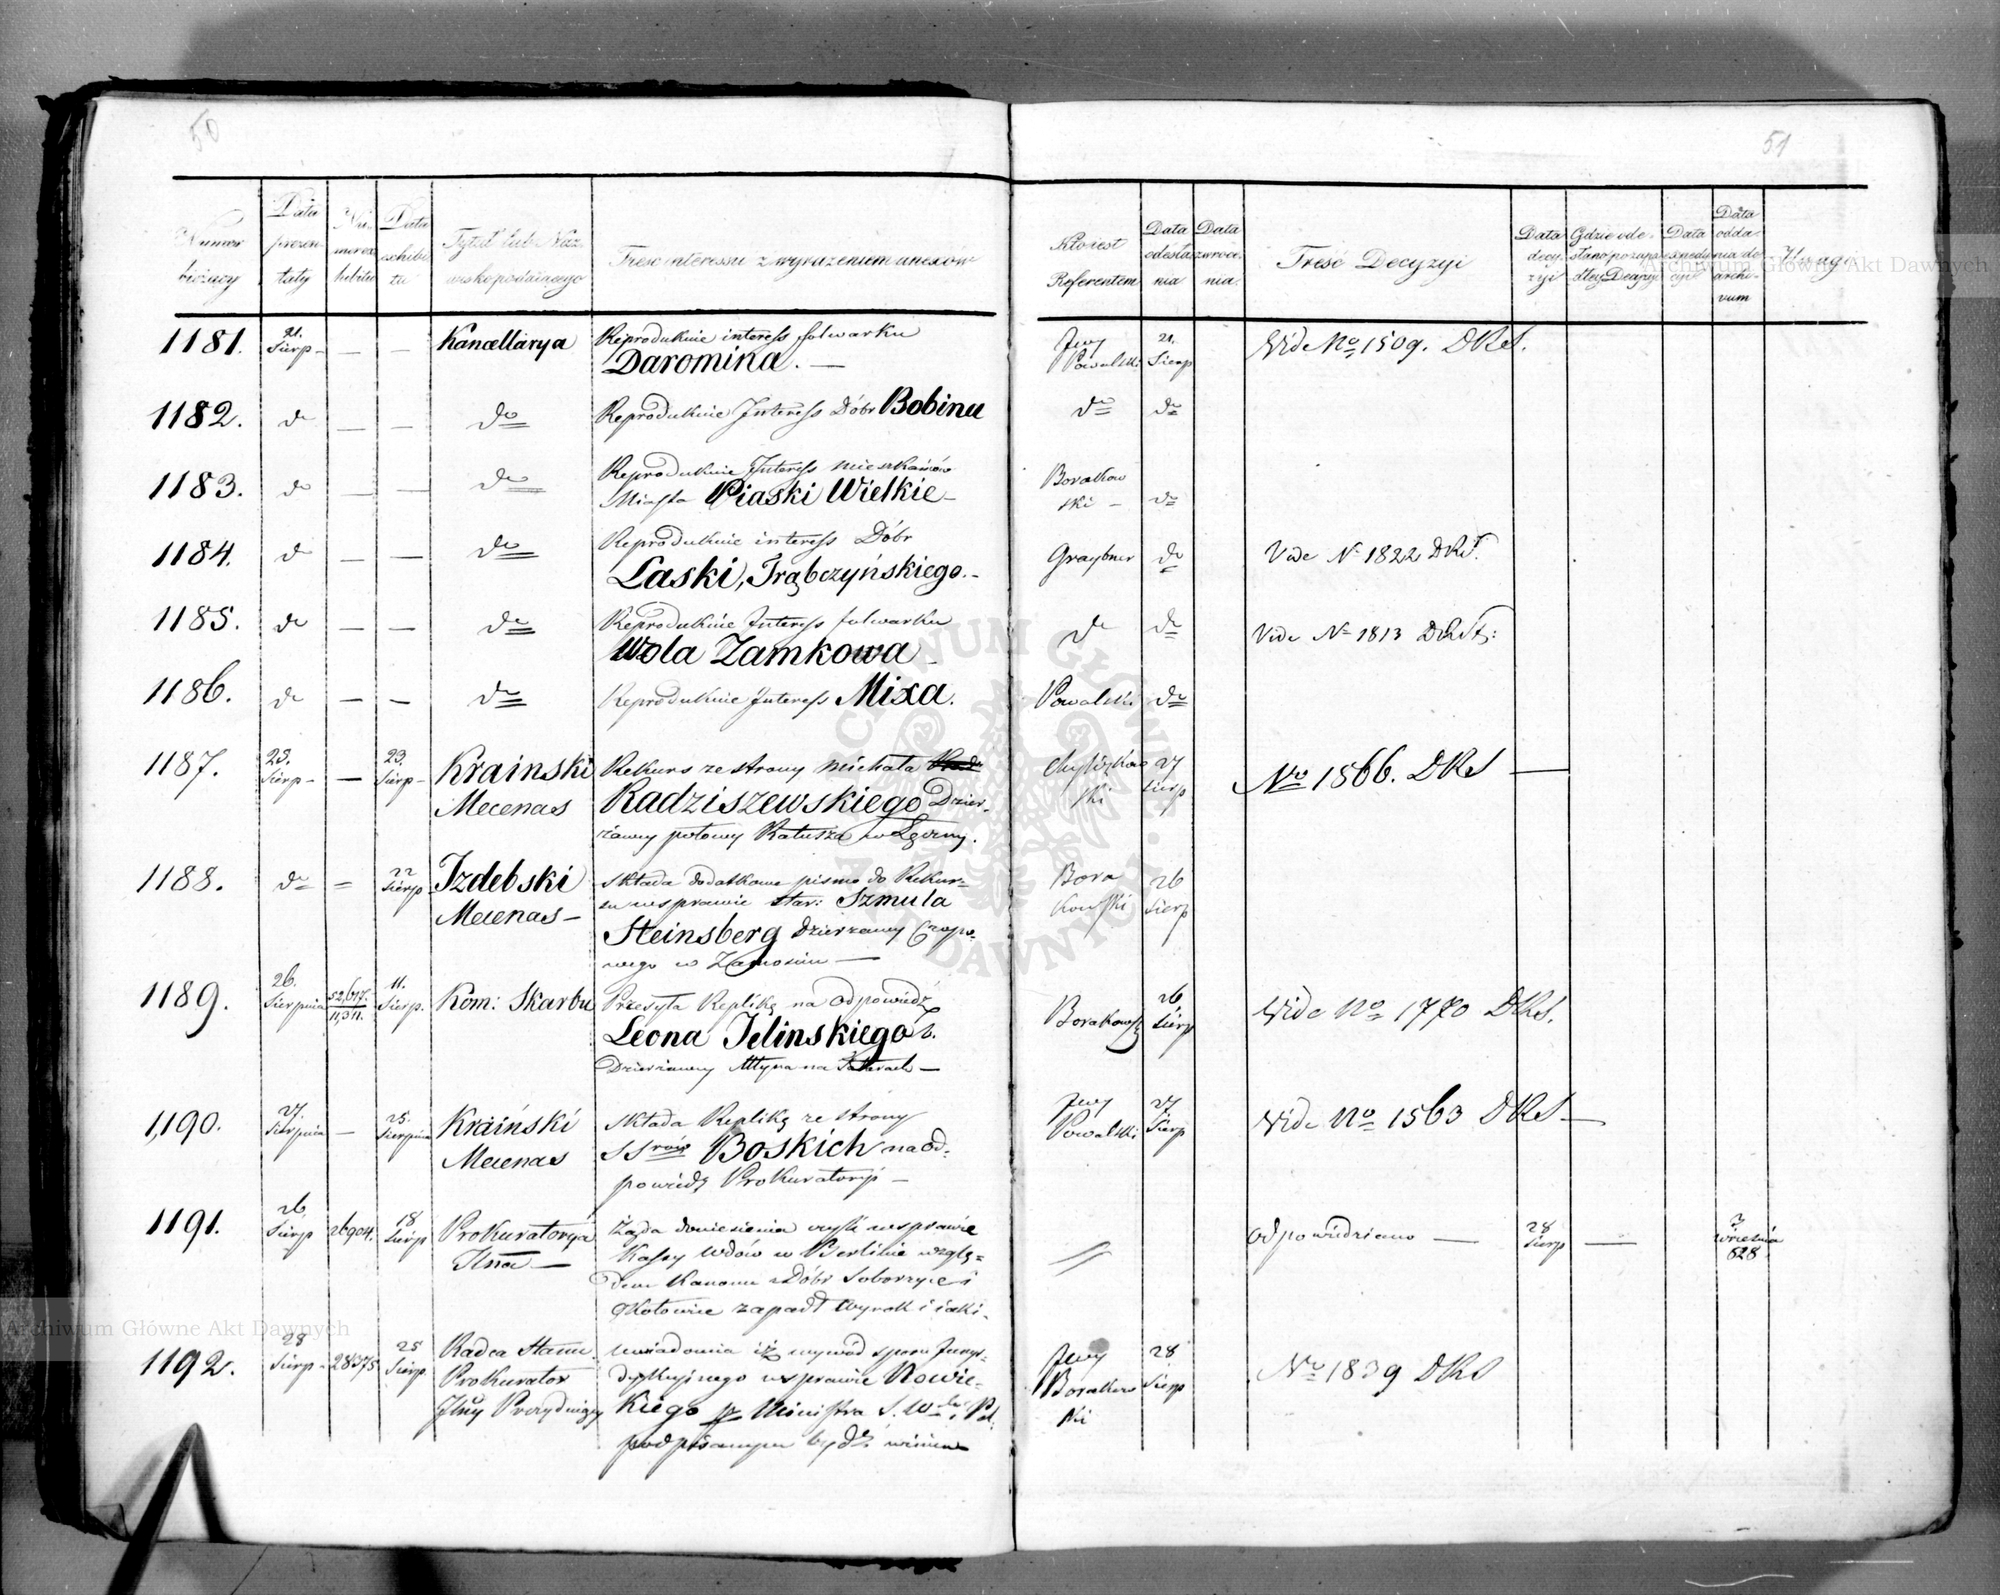 50
51
Numer bieżący
Data prezentaty
Numer exhibitu
Data exhibitu
Tytuł lub Nazwisko podaiącego
Treść interessu z wyrażeniem anexów
Kto iest Referentem
Data odesłania
Data zwrócenia
Treść Decyzyi
Data decyzyi
Data expedycyi
Data oddania do archivum
Uwagi
1181. 21. Sierp — — Kancellarya Reprodukuie interess folwarku
Daromina. —
Powalski 21. Sierp Vide No 1509. DRS.
1182. do — — do Reprodukuie Interess Dóbr Bobinu do do
1183. do — — do Reprodukuie Interess mieszkańców
Miasta Piaski Wielkie —
Borakowski — do
1184. do — — do Reprodukuie interess Dóbr
Laski, Trąbczyńskiego. —
Graybner do Vide No 1822 DRS.
1185. do — — do Reprodukuie Interess folwarku
Wola Zamkowa —
do do Vide No 1813 DRSt:
1186. do — — do Reprodukuie Interess Mixa. Powalski do
1187. 25. Sierp — — 23. Sierp — Kraiński
Mecenas
Rekurs ze strony Michała
Radziszewskiego Dzier-
żawcy połowy Ratusza w Łęczny.
27 Sierp No 1566. DRS —
1188. do = 22 Sierp Izdebski
Mecenas —
Składa dodatkowe pismo do Rekur-
su w sprawie star: Szmula
Steinsberg Dzierżawcy Czopo-
wego w Zamościu —
Borakowski 26 Sierp
1189. 26. Sierpnia 52,617. 11,311. 11. Sierp. Kom: Skarbu
Przesyła Replikę na odpowiedź
Leona Jelinskiego b.
Dzierżawcy Młyna na
Borakowski 26. Sierp Vide No 1770 DRS.
1190. 27. Sierpnia — 25. Sierpnia Kraiński
Mecenas
Składa Replikę ze strony
SSrów Boskich na od-
powiedź Prokuratoryi —
Powalski 27 Sierp Vide No 1563 DRS —
1191. 26. Sierp 26904. 18. Sierp Prokuratorya
Żąda doniesienia czyli w sprawie
Kassy Wdów w Berlinie wzglę-
dem Kanonu z Dóbr Soborzyce i
zapadł Wyrok i iaki.
odpowiedziano — 28 Sierp — 2 września 828
1192. 28 Sierp — 28375 25 Sierp. Radca Stanu
Prokurator
uwiadomia iż wywód sporu Jurys-
dykcyjnego w sprawie Nowic-
kiego pr Ministra S. W.
podpisanym bydź winien
Borakowski 28 Sierp No 1839 DRS
Archiwum Główne Akt Dawnych
Archiwum Główne Akt Dawnych
ARCHIWUM GŁÓWNE AKT DAWNYCH